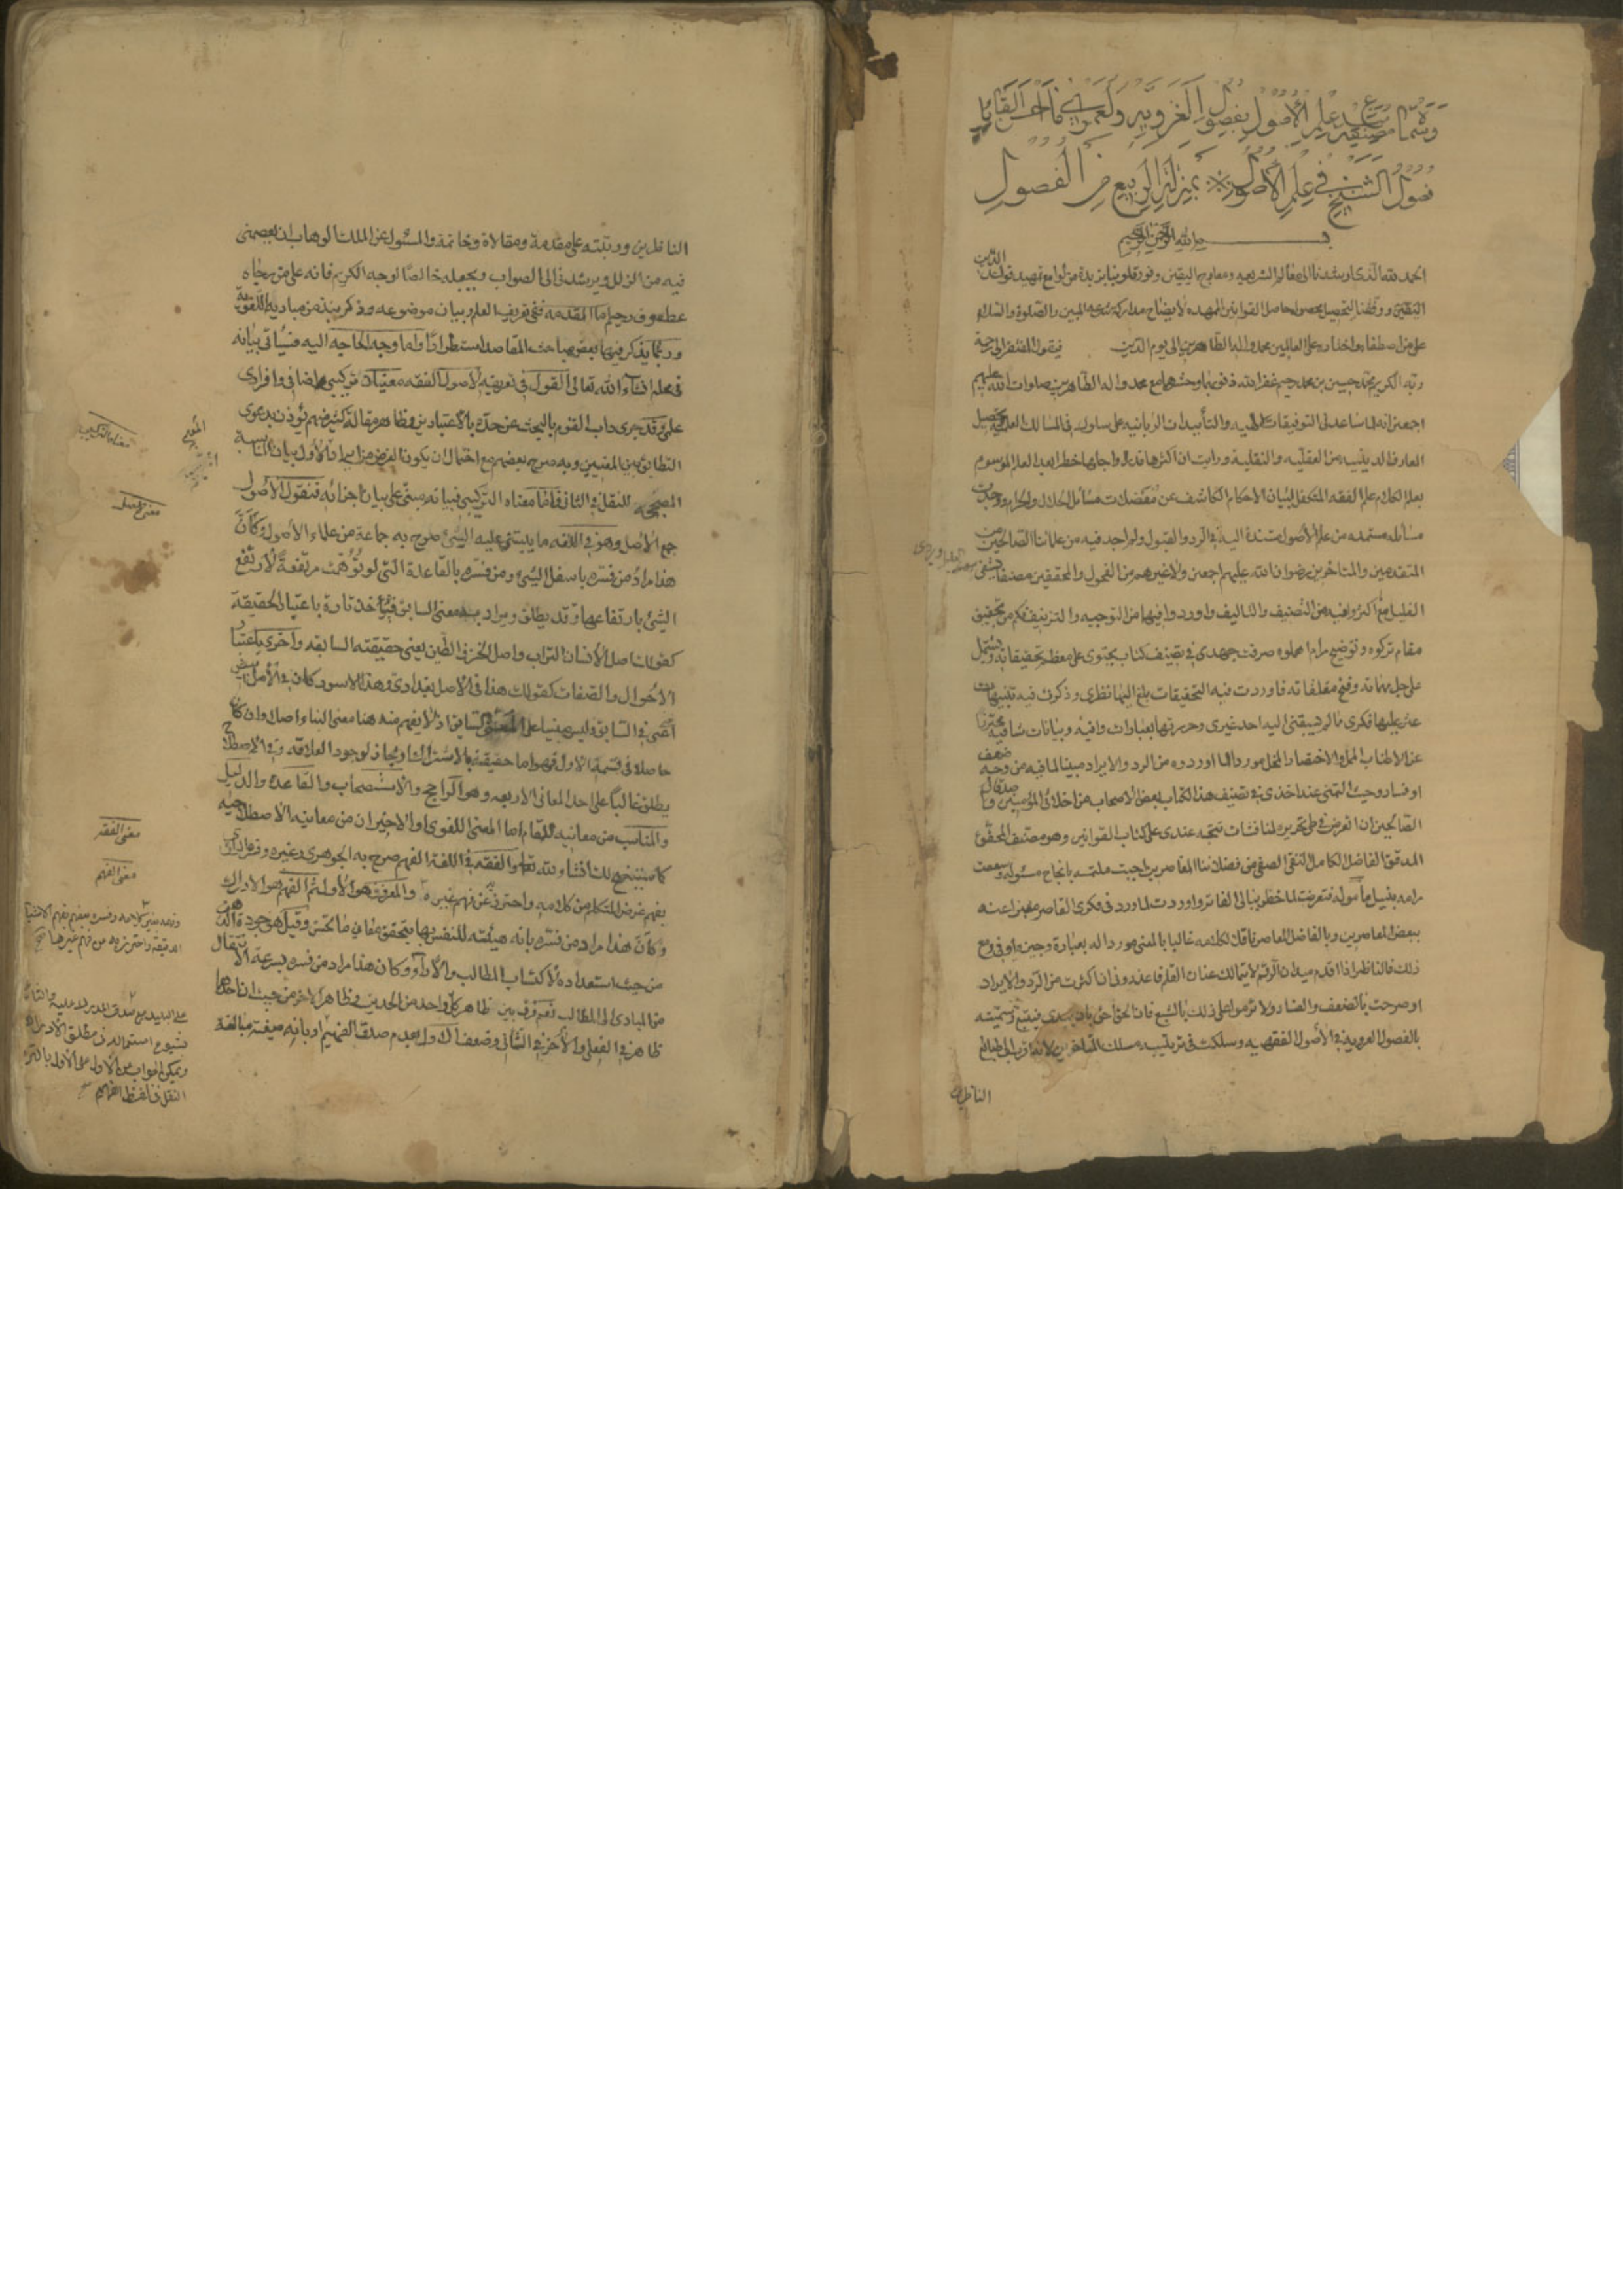 وسماه مصنفه في علم الأصول بفصول الغروية ولعمري ما أحسن القائل
فصول الشيخ في علم الأصول بمنزلة الربيع من الفصول
بسم الله الرحمن الرحيم
الحمد لله الذي ارشدنا الى معالم الشريعه ومعارج اليقين ونور قلوبنا بزبدة من لوامع تمهيد قواعد الدين
المتقين ووفقنا لتحصيل محصول حاصل القوانين الممهده لايضاح مدارك شرعه المبين والصلوة والسلام
على من اصطفاه واختاره على العالمين محمد واله الطاهرين الى يوم الدين فيقول المفتقر الى رحمة
ربه الكريم محمد حسين بن محمد رحيم غفر الله ذنوبهما وحشرهما مع محمد واله الطاهرين صلوات الله عليهم
اجمعين انه لما ساعدني التوفيقات الالهيه والتأييدات الربانيه على سلوك المسالك العلميه وتحصيل
المعارف الدينيه من العقليه والنقلية ورايت ان اكثرها قدرا واجلها خطرا بعد العلم الموسوم
بعلم الكلام علم الفقه المتكفل لبيان الاحكام الكاشف عن معضلات مسائل الحلال والحرام ووجدت
مسائله مستمده من علم الاصول مستندة اليه في الرد والقبول ولم اجد فيه من علمائنا الصالحين من
المتقدمين والمتاخرين رضوان الله عليهم اجمعين ولا غيرهم من الفحول والمحققين مصنفا يشفي
الغليل مع اكثروا فيه من التصنيف والتاليف واوردوا فيها من التوجيه والتزييف فكم من تحقيق
مقام تركوه وتوضيح مرام اهملوه صرفت جهدي في تصنيف كتاب يحتوى على معظم تحقيقاته ويشتمل
على جل مهماته وفتح مقلفاته فاوردت فيه التحقيقات بلغ اليها نظرى وذكرت فيه تنبيهات
عثر عليها فكرى مالم يسبقنى اليه احد غيرى وحررتها بعبارات وافيه وبيانات شافيه محترزا
عن الاطناب الممل والاختصار المخل موردا لما اوردوه من الرد والايراد مبينا لما فيه من وجه ضعف
او فساد وحيث التمس عند اخذى في تصنيف هذا الكتاب بعض الاصحاب من اخلائى المؤمنين وأصدقائى
الصالحين ان اتعرض في طى تحريره لمناقشات تتجه عندى على كتاب القوانين وهو مصنف المحقق
المدقق الفاضل الكامل التقى الصفى من فضلائنا المعاصرين اجبت ملتمسه بانجاح مسئوله وسعت
مرامه بنيل مأموله فتعرضت لما خطر ببالى الفاتر واوردت لما ورد في فكرى القاصر معبرا عنه
ببعض المعاصرين وبالفاضل المعاصر ناقلا لكلامه غالبا بالمعنى موردا له بعبارة وجيزه اوفى ومع
ذلك فالناظر اذا اقدم ميدان الرقم لا يتمالك عنان القلم فاعذرونى ان اكثرت من الرد والايراد
او صرحت بالضعف والفساد ولا ترموا على ذلك بالشنيع فان الحق احق بان يهدى فيتبع وسميته
بالفصول الغرويه في الاصول الفقهيه وسلكت في ترتيبه مسلك المتاخرين لانه اقرب الى طباع
الناظرين
الناظرين ورتبته على مقدمة ومقالات وخاتمة والمسئول عن الملك الوهاب ان يعصمنى
فيه من الزلل ويرشدنى الى الصواب ويجعله خالصا لوجه الكريم فانه على من رجاه
عطوف رحيم اما المقدمه ففي تعريف العلم وبيان موضوعه وذكر نبذ من مباديه اللغوية
وربما يذكر فيها بعض مباحث المقاصد استطرادا واما وجه الحاجه اليه فسياتى بيانه
في محله انشاء الله تعالى القول في تعريفه لاصول الفقه معنيان تركيبى اضافى وافرادى
علمى وقد جرى داب القوم بالبحث عن حده بالاعتبارين وظاهر مقالة كثير منهم يؤذن بدعوى
التطابق بين المعنيين وبه صرح بعضهم مع احتمال ان يكون الغرض من ايراد الاول بيان المناسبة
المصححه للنقل في الثانى فاما معناه التركيبى فبيانه مبتنى على بيان اجزائه فنقول الاصول
جمع الاصل وهو في اللغه ما يبتنى عليه الشئ صرح به جماعة من علماء الاصول وكأن
هذا مراد من فسره باسفل الشئ ومن فسره بالقاعدة التى لو توهمت مرتفعة لارتفع
الشئ بارتفاعها وقد يطلق ويراد به معنى السابق فيؤخذ تارة باعتبار الحقيقة
كقولك اصل الانسان التراب واصل الخزف الطين يعنى حقيقته السابقه واخرى باعتبار
الاحوال والصفات كقولك هذا في الاصل بغدادى وهذا الاسود كان في الاصل ابيض
أعنى في السابق وليس مبنيا على المعنى السابق اذ لا يفهم منه هنا معنى البناء اصلا وان كان
حاصلا في قسمه الاول فهو اما حقيقة بالاشتراك او مجاز لوجود العلاقه وفي الاصطلاح
يطلق غالبا على احد المعانى الاربعه وهو الراجح والاستصحاب والقاعدة والدليل
والمناسب من معانيه للمقام اما المعنى اللغوى او الاخيران من معانيه الاصطلاحيه
كما سيتضح لك انشاء الله تعالى والفقه في اللغة الفهم صرح به الجوهرى وغيره
بفهم غرض المتكلم من كلامه واحترز عن فهم غيره والمعروف هو الاول ثم الفهم هو الادراك
وكأن هذا مراد من فسره بانه هيئة للنفس بها يتحقق معانى ما تحس وقيل هو جودة الذهن
من حيث استعداده لاكتساب المطالب والاراء وكان هذا مراد من فسره بسرعة الانتقال
من المبادى الى المطالب نعم فرق بين ظاهر كل واحد من الحدين وظاهر الاخر من حيث ان احدهما
ظاهر في الفعل والاخر في الشأنى وضعف الاول بعدم صدق الفهيم او بانه صيغة مبالغة
معناه التركيبى
معنى الاصل
معنى الفقه
معنى الفهم